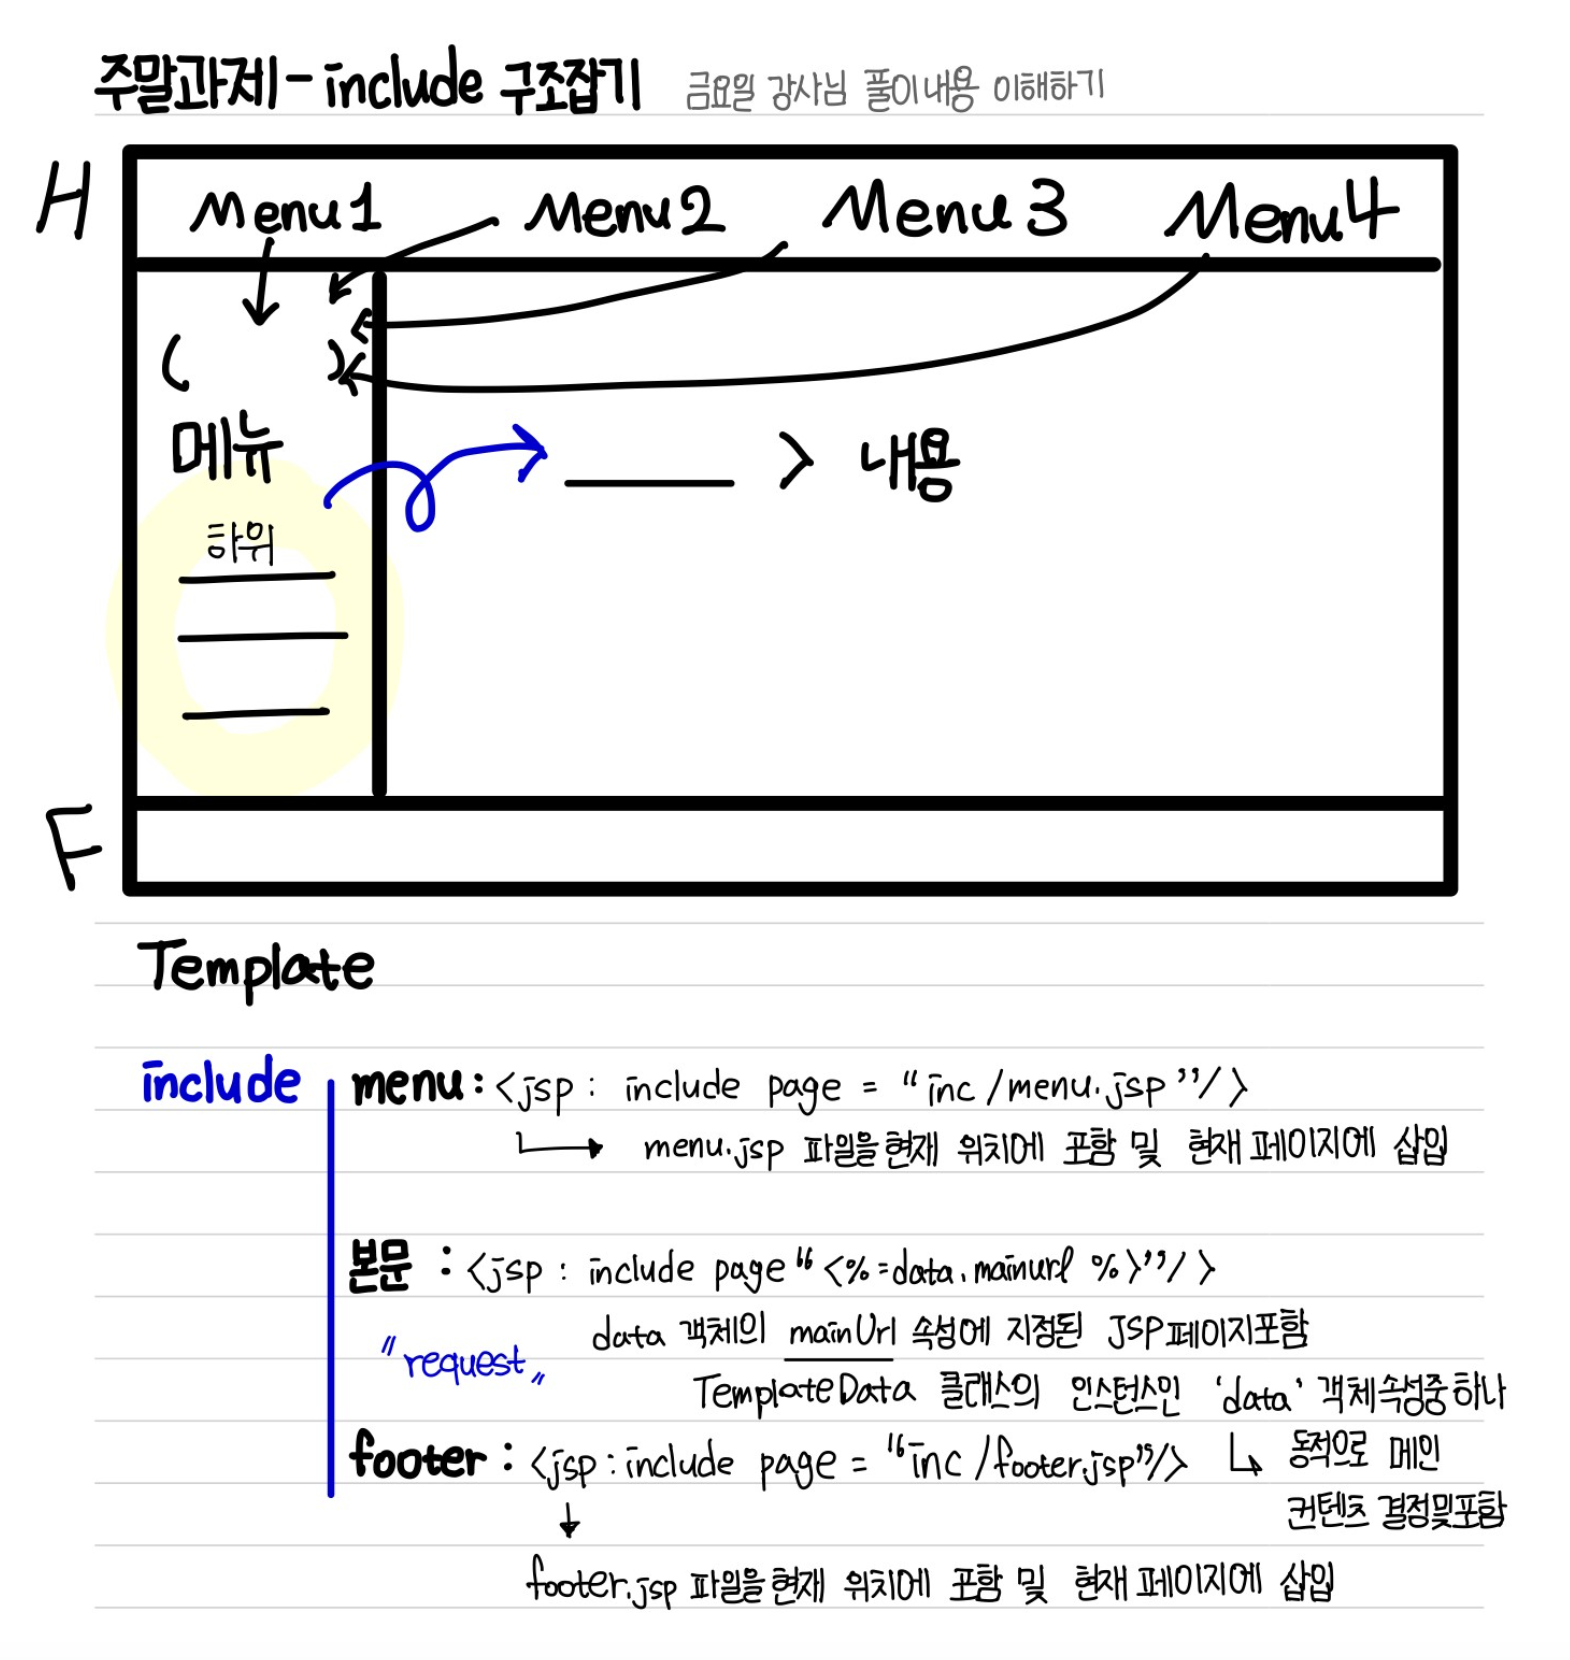 주말과제 - include 구조잡기 금요일 강사님 풀이내용 이해하기
H
Menu1 Menu2 Menu3 Menu4
( )
메뉴
> 내용
하위
F
Template
include
menu : <jsp : include page = "inc /menu.jsp"/>
menu.jsp 파일을 현재 위치에 포함 및 현재 페이지에 삽입
본문 : <jsp : include page "<%=data.mainurl %>"/>
data 객체의 mainUrl 속성에 지정된 JSP페이지포함
"request"
TemplateData 클래스의 인스턴스인 'data' 객체속성중하나
footer : <jsp : include page = "inc /footer.jsp"/>
동적으로 메인
컨텐츠 결정및포함
footer.jsp 파일을 현재 위치에 포함 및 현재 페이지에 삽입